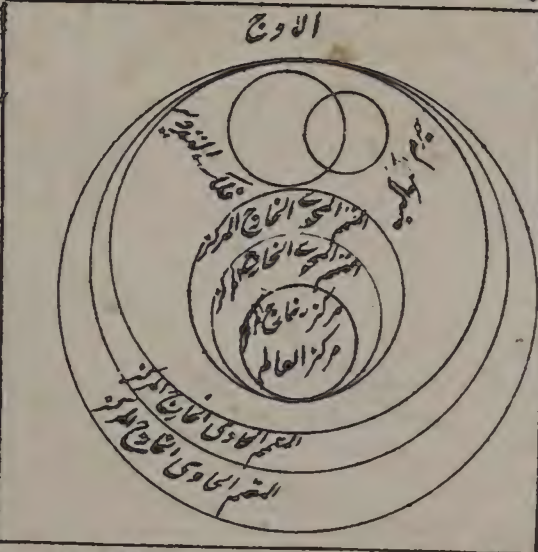 الاوج
فلك التدوير
جرم
المتمم المحوى الخارج المركز
المتمم المحوى الخارج المركز
مركز خارج
مركز العالم
المتمم الحاوى الخارج المركز
المتمم الحاوى الخارج المركز